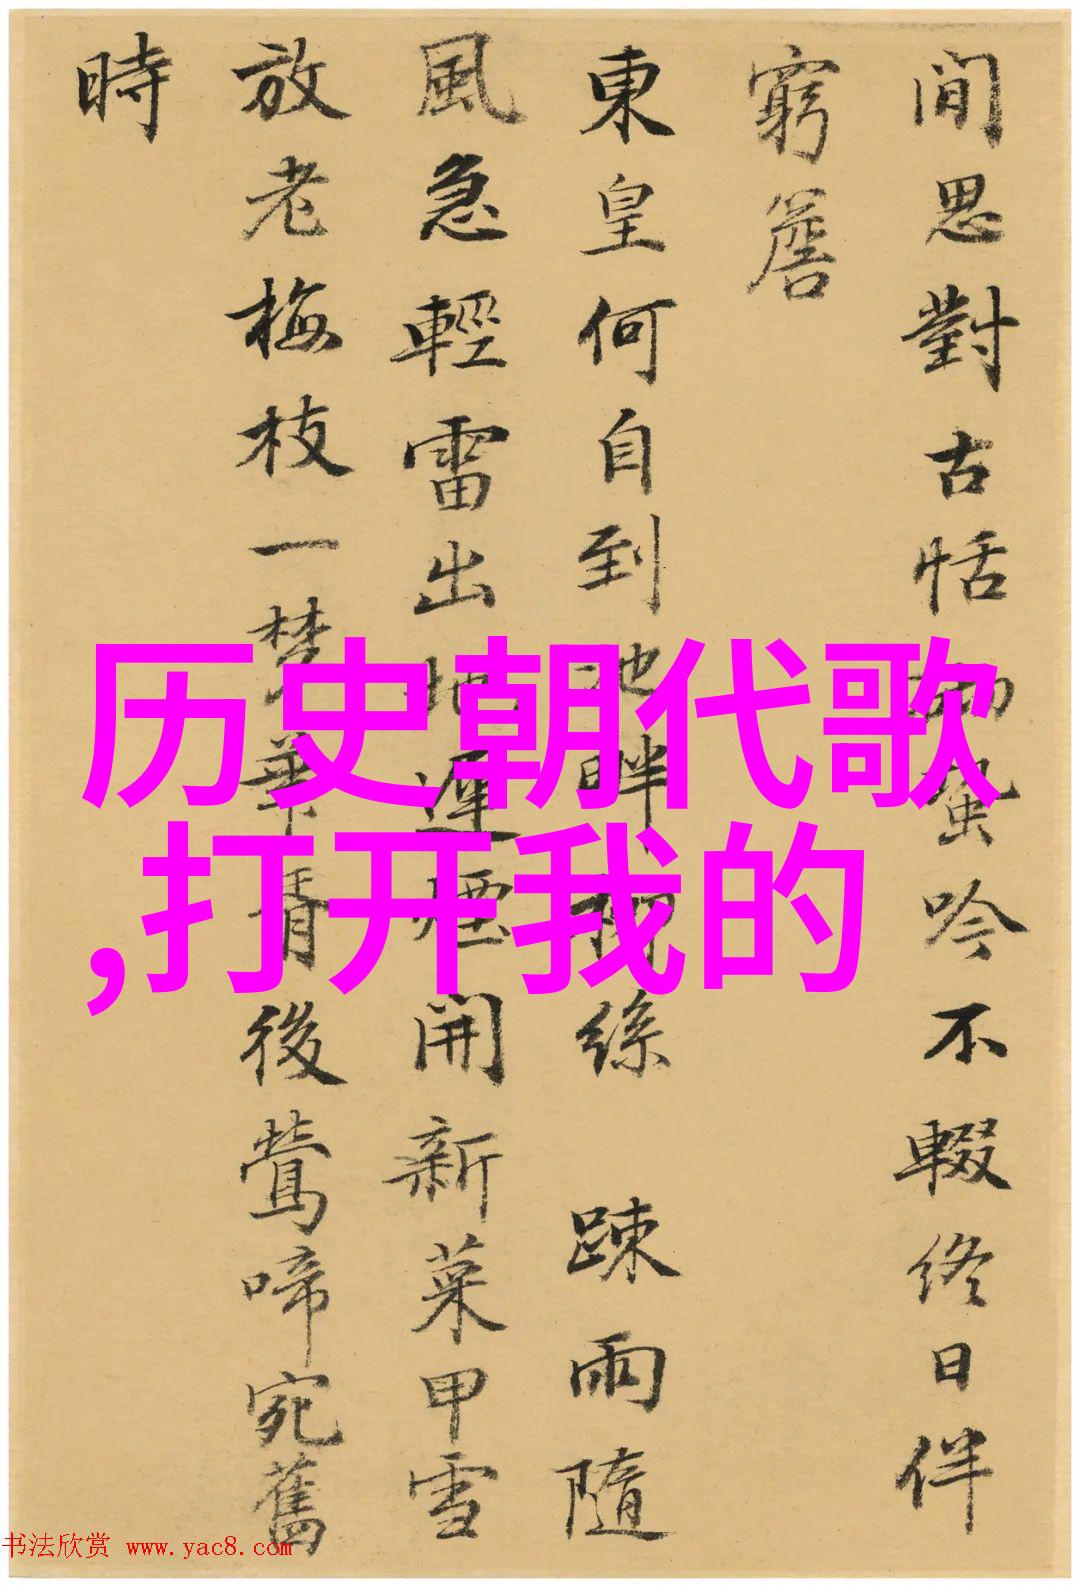 閒思對古恬 蛩吟不輟終日伴
窮簷
東皇何自到池畔柳絲 踈雨隨
風急輕雷出地遲煙開新菜甲雪
放老梅枝一梦華胥後鶯啼宛舊
時
历史朝代歌
,打开我的
书法欣赏 www.yac8.com